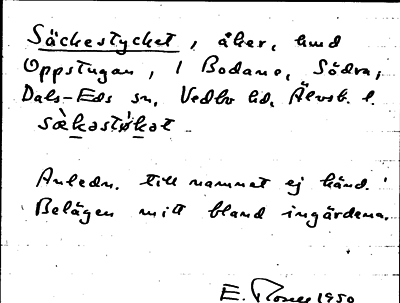 Säckestycket, åker, hmd
Oppstugan, 1 Bodane, Södra,
Dals-Eds sn, Vedbo hd, Älvsb. l.
sæ̀kəstỳkət
Anledn. till namnet ej känd.
Belägen mitt bland ingärdena.
E. 1950